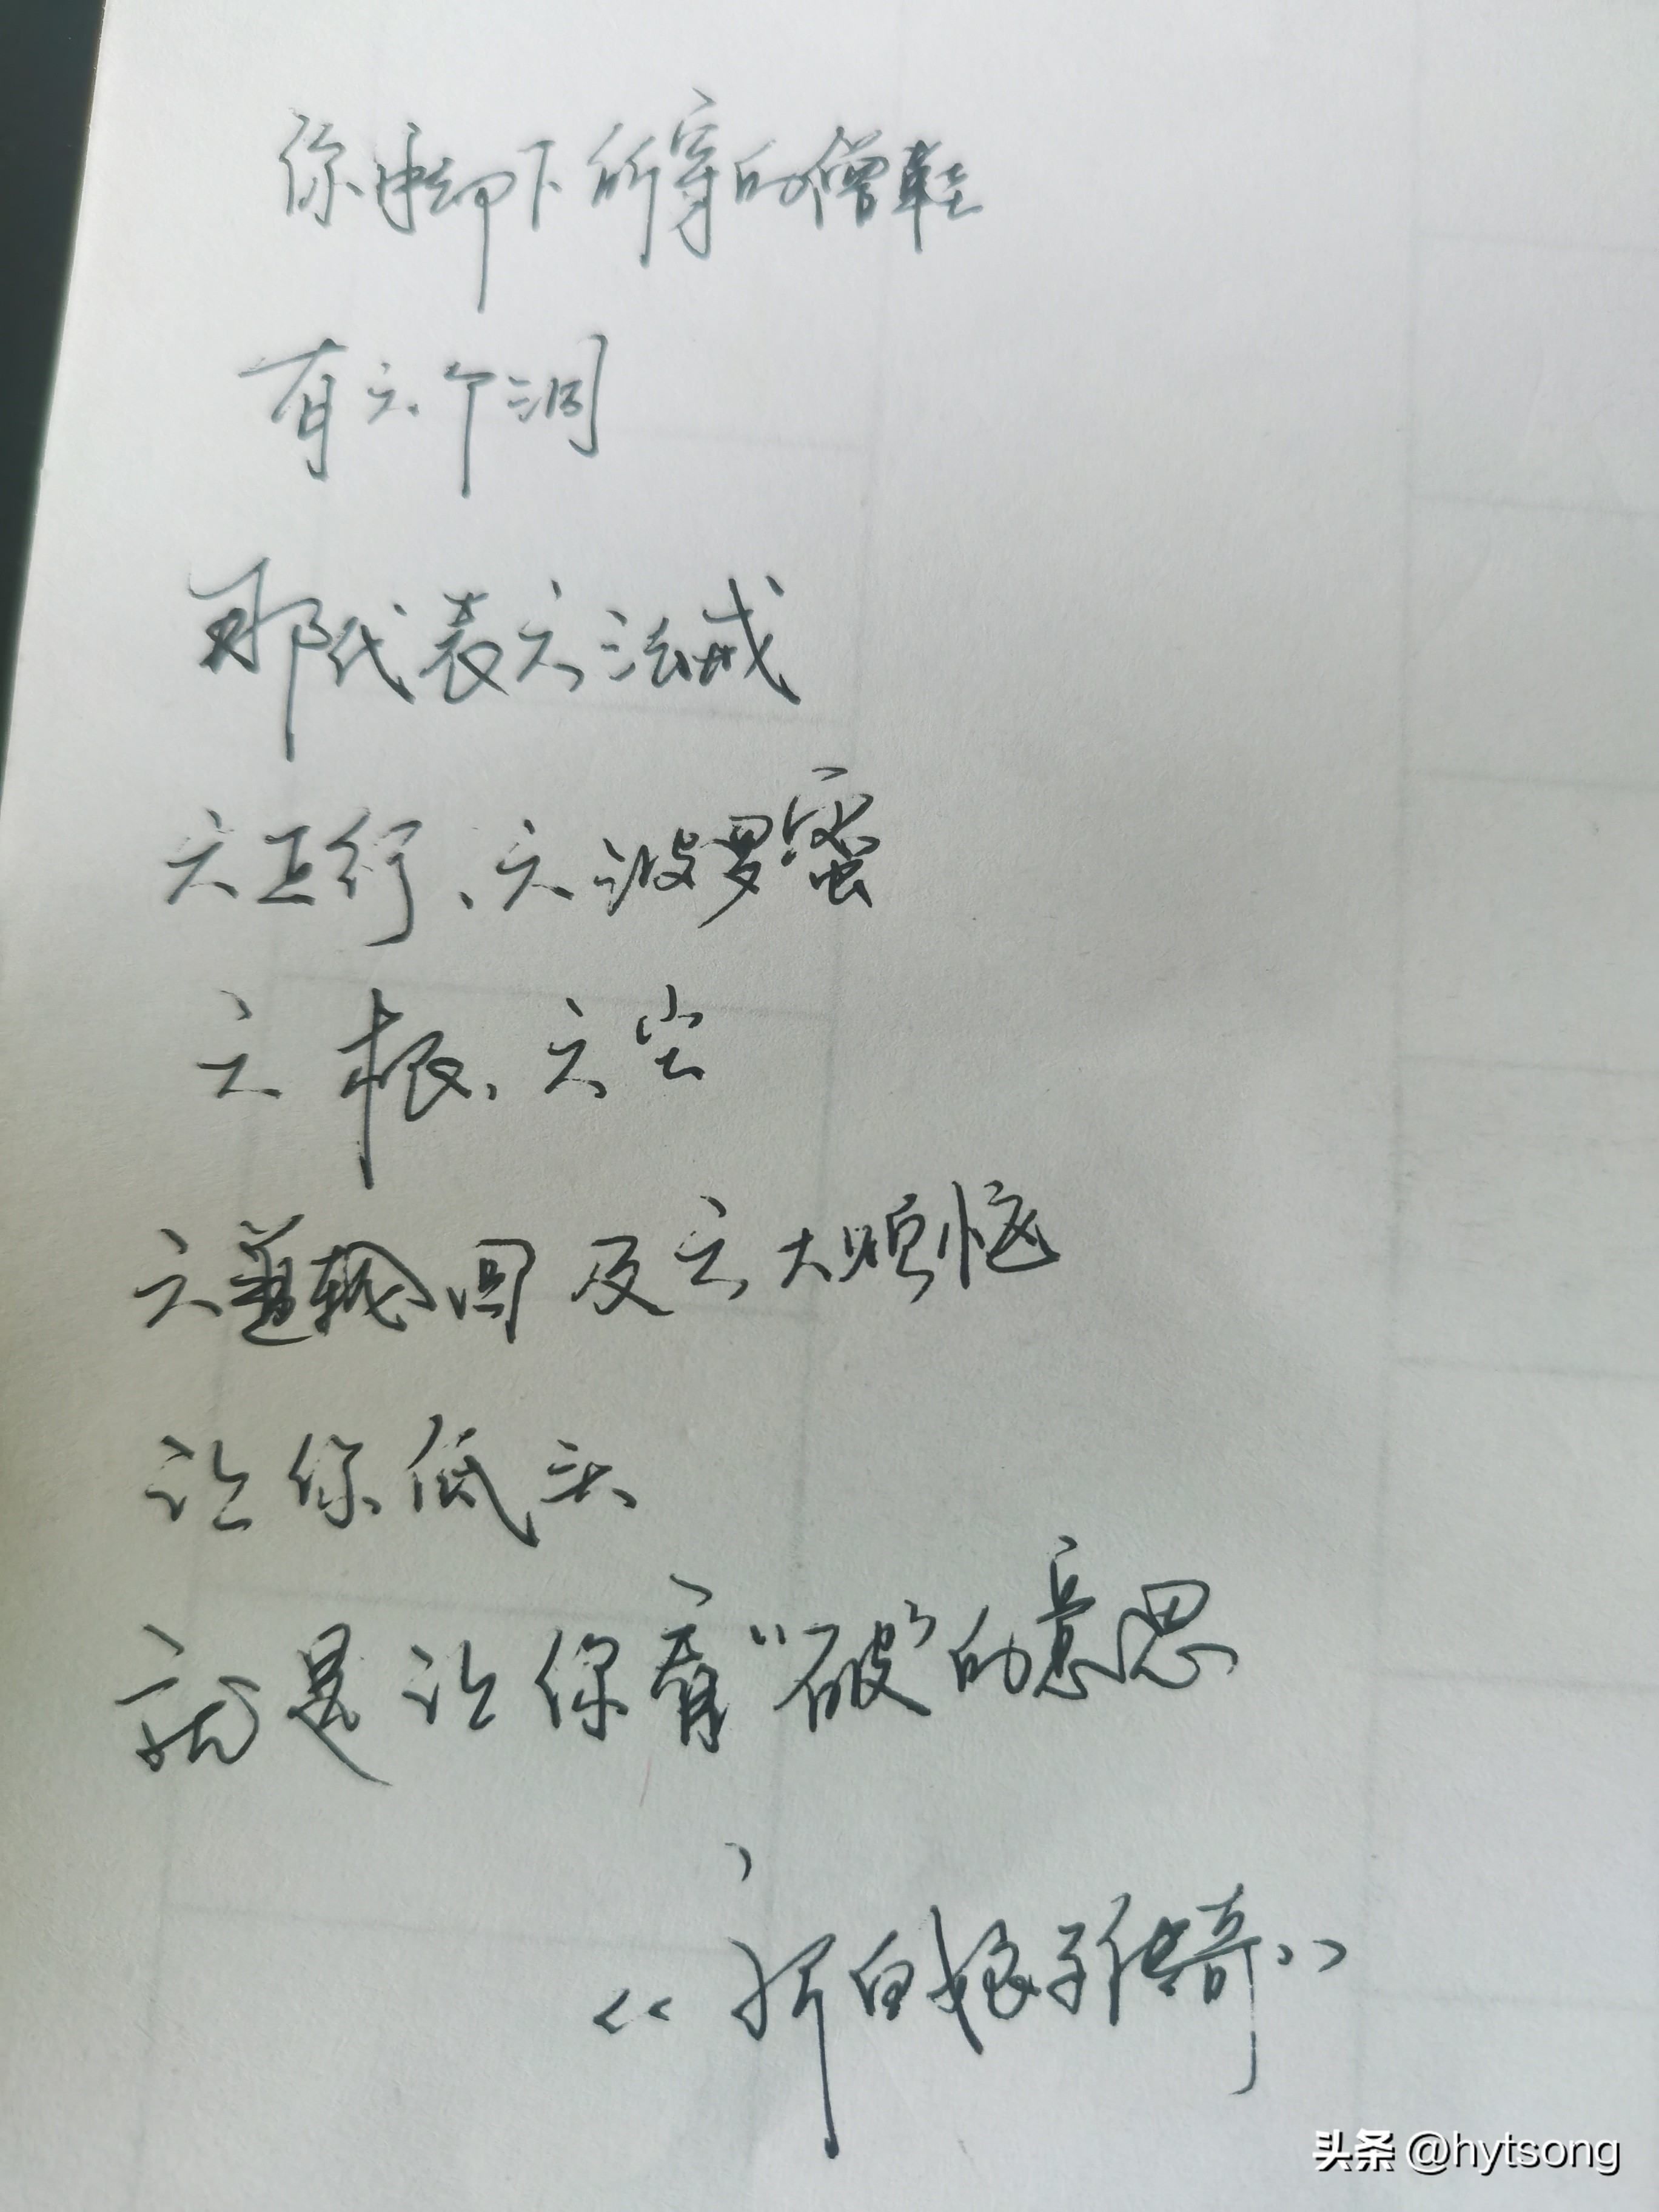 你脚下所穿的僧鞋
有六个洞
那代表六法戒
六正行、六波罗蜜
六根、六尘
六道轮回及六大烦恼
让你低头
就是让你看“破”的意思
《新白娘子传奇》
头条 @hytsong